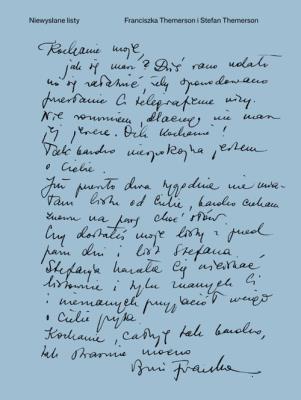 Niewysłane listy
Franciszka Themerson i Stefan Themerson
Kochanie moje,
jak się masz? Dziś rano udało
mi się załatwić, żeby spowodowano
przesłanie Ci telegrafem wizy.
Nie rozumiem, dlaczego nie masz
jej jeszcze. Och Kochanie!
Tak bardzo niespokojna jestem
o Ciebie.
Już prawie dwa tygodnie nie mia-
łam listu od Ciebie, bardzo czekam
na parę choć słów.
Czy dostałeś moje listy z przed
paru dni i list Stefana,
Stefania kazała Cię uściskać
i tylu znanych Ci
i nieznanych przyjaciół wciąż
o Ciebie pyta.
Kochanie, całuję tak bardzo,
tak strasznie mocno
Franka